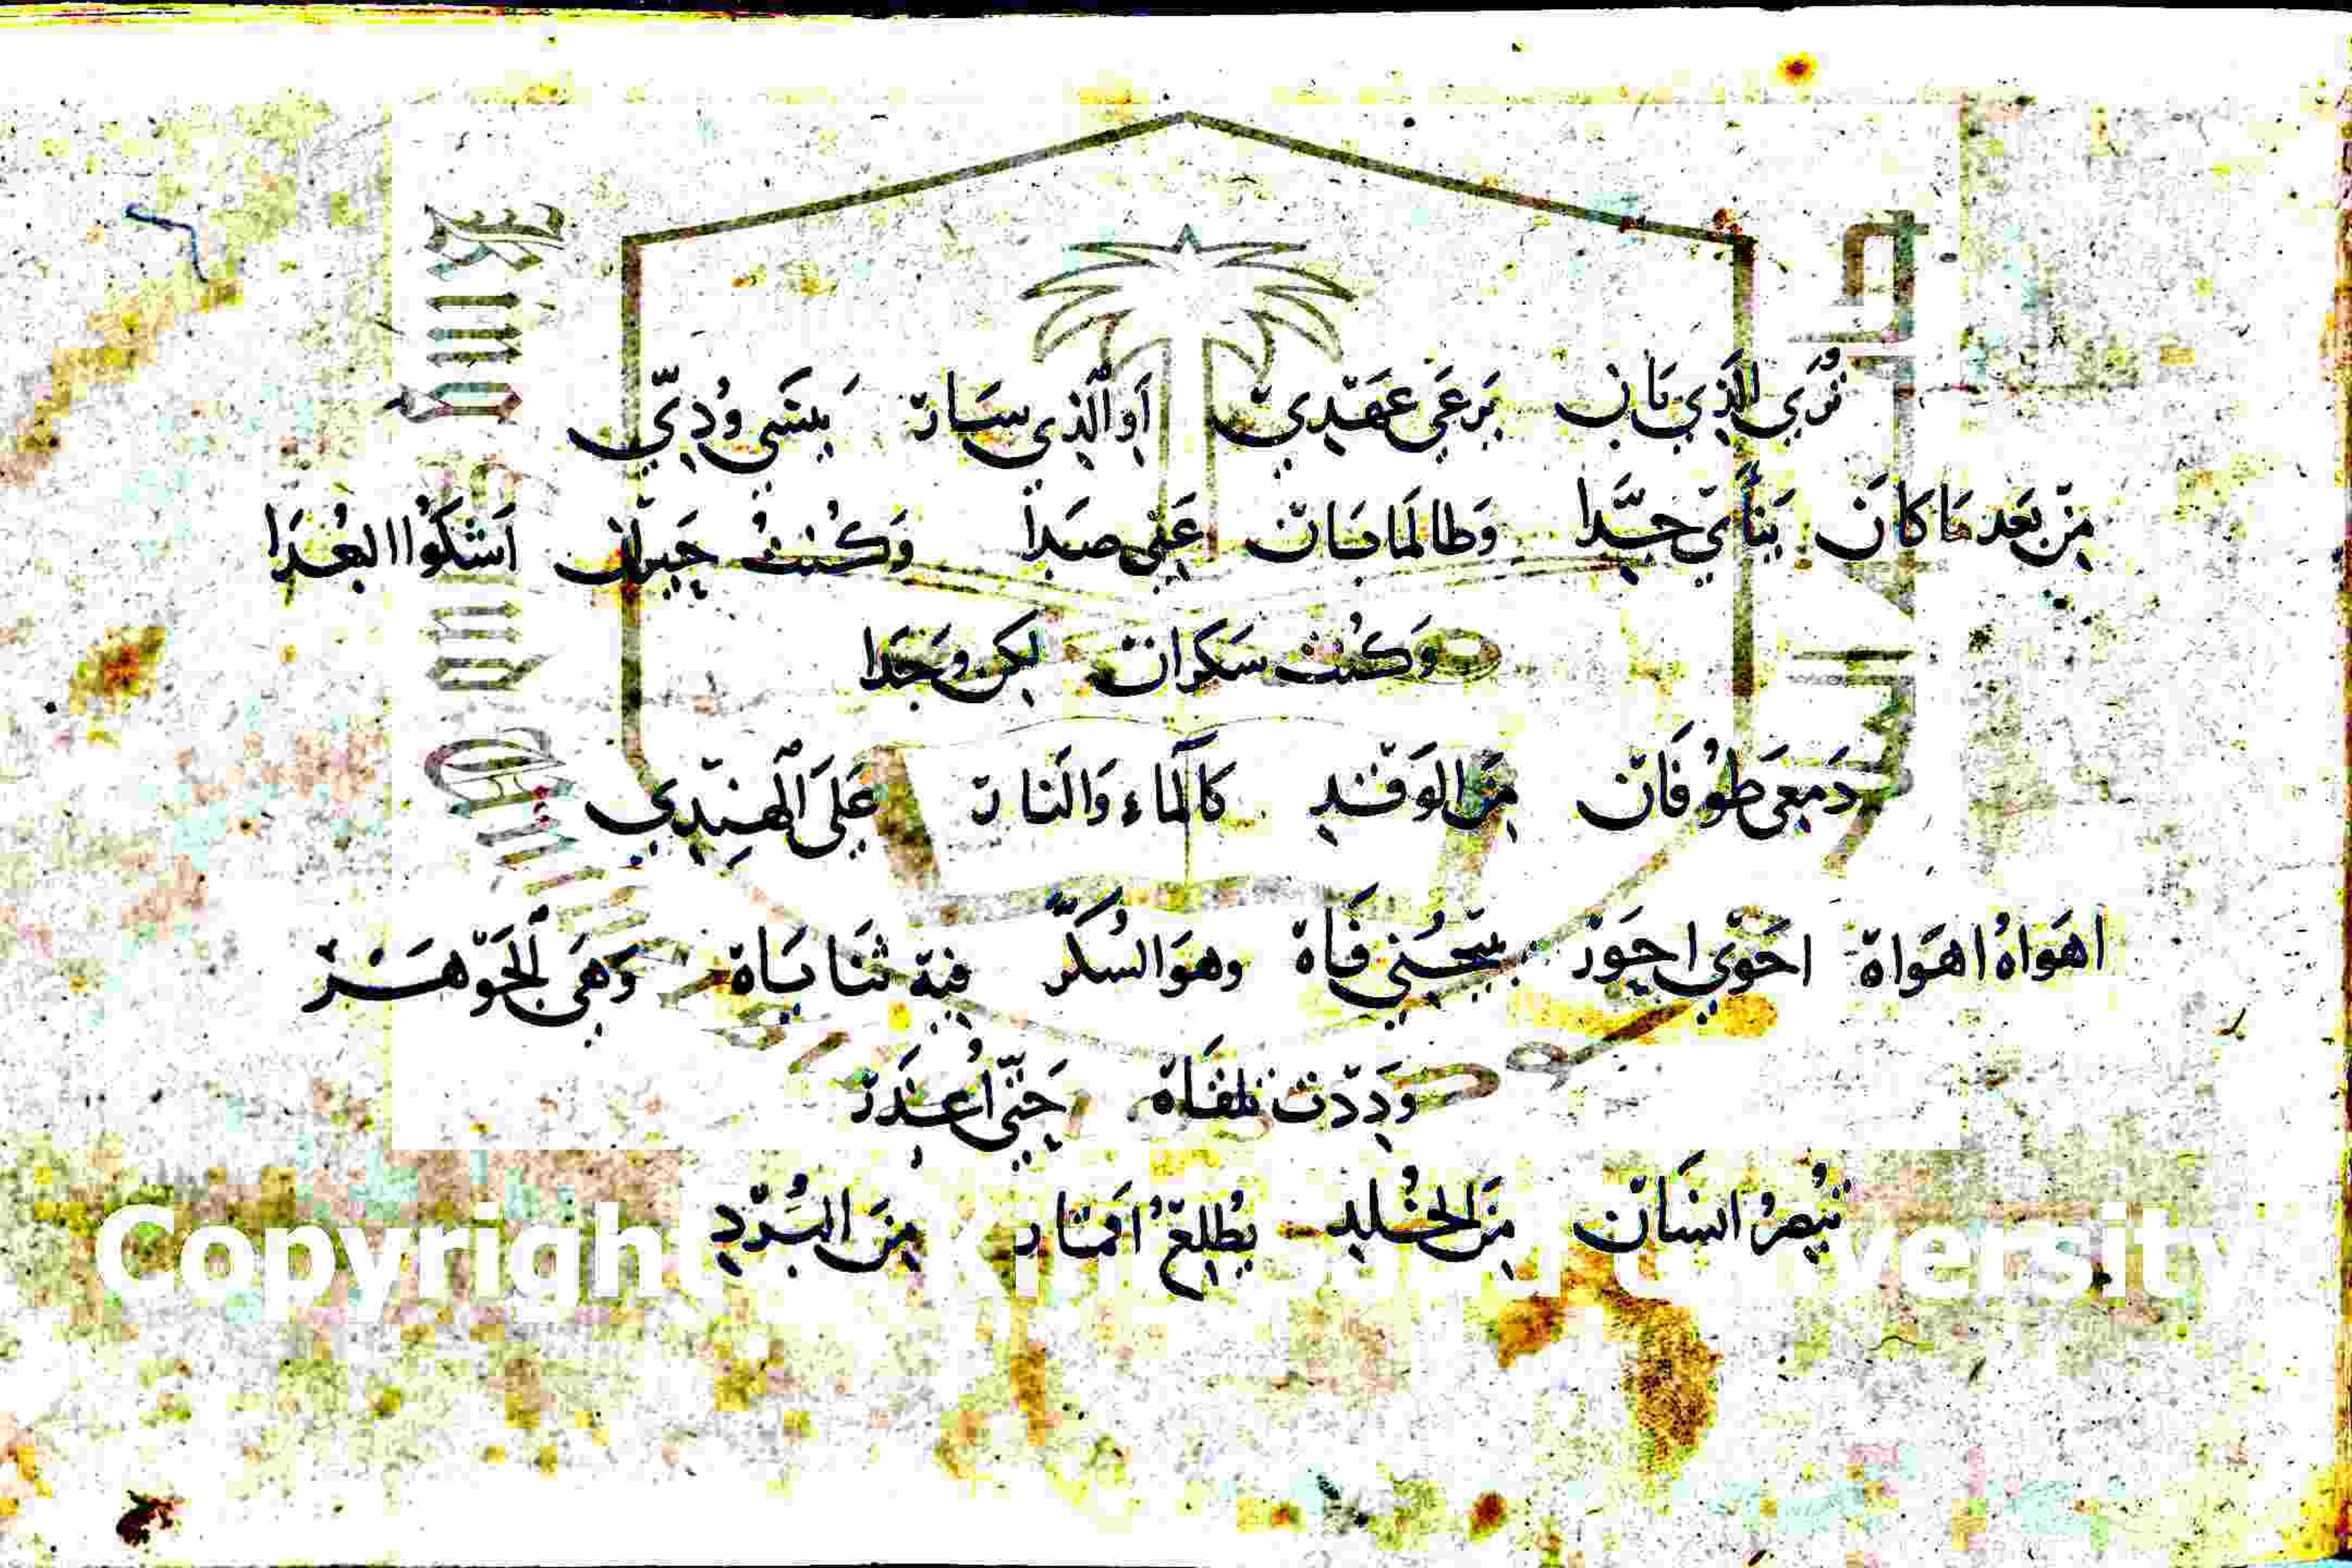 تُرَي الَّذِي بَانْ يَرعَى عَهْدِي اَو الَّذِي سَارْ يَنسَى وُدِّي
مِنْ بَعد مَا كانَ يَنأَىْ جدَّا وَطالَما بَانْ عَنِّى صدَا وَكُنتُ حَيرَان اَشكُوا البُعْدَا
وَكُنت سَكرَان لكِن وَجْدَا
دَمعِى طُوفَانْ مِنَ الوَقْدِ كَالمَاء وَالنَارْ عَلَى الْهِنْدِي
اهوَاهُ اهوَاهْ احْوَي احوَرْ يَحْنِي فَاهْ وهوَ السُكَّرْ فيهْ ثنَايَاهْ وَهىَ الْجَوْهَرْ
وَدِدْت تلقَاهْ حَتَّى اُعذَرْ
تُبصِرُ انسَانْ مِنَ الخُلدِ يُطلِعُ اَقمَار مِنَ البُرْدِ
Copyright © King Saud University